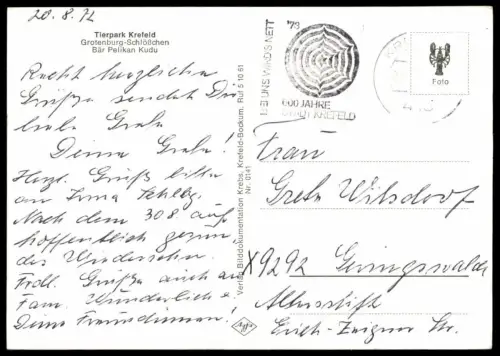 20.8.72
Tierpark Krefeld
Grotenburg-Schlößchen
Bär Pelikan Kudu
Recht herzliche
Grüße sendet Dir
liebe Greta
Deine Grete!
Herzl. Grüße bitte
an Irma
Nach dem 30.8. auf
hoffentlich
Wiedersehn.
Frdl. Grüße auch an
Fam. Wunderlich &
Deine Freundinnen!
Verlag Bilddokumentation Krebs, Krefeld-Bockum, Ruf 5 10 61
Nr. 0141
Agfa
BEI UNS WIRD'S NETT
'73
600 JAHRE
STADT KREFELD
Foto
Frau
Greta Wilsdorf
X9292 Geringswalde
Altersstift
Erich-Zeigner Str.